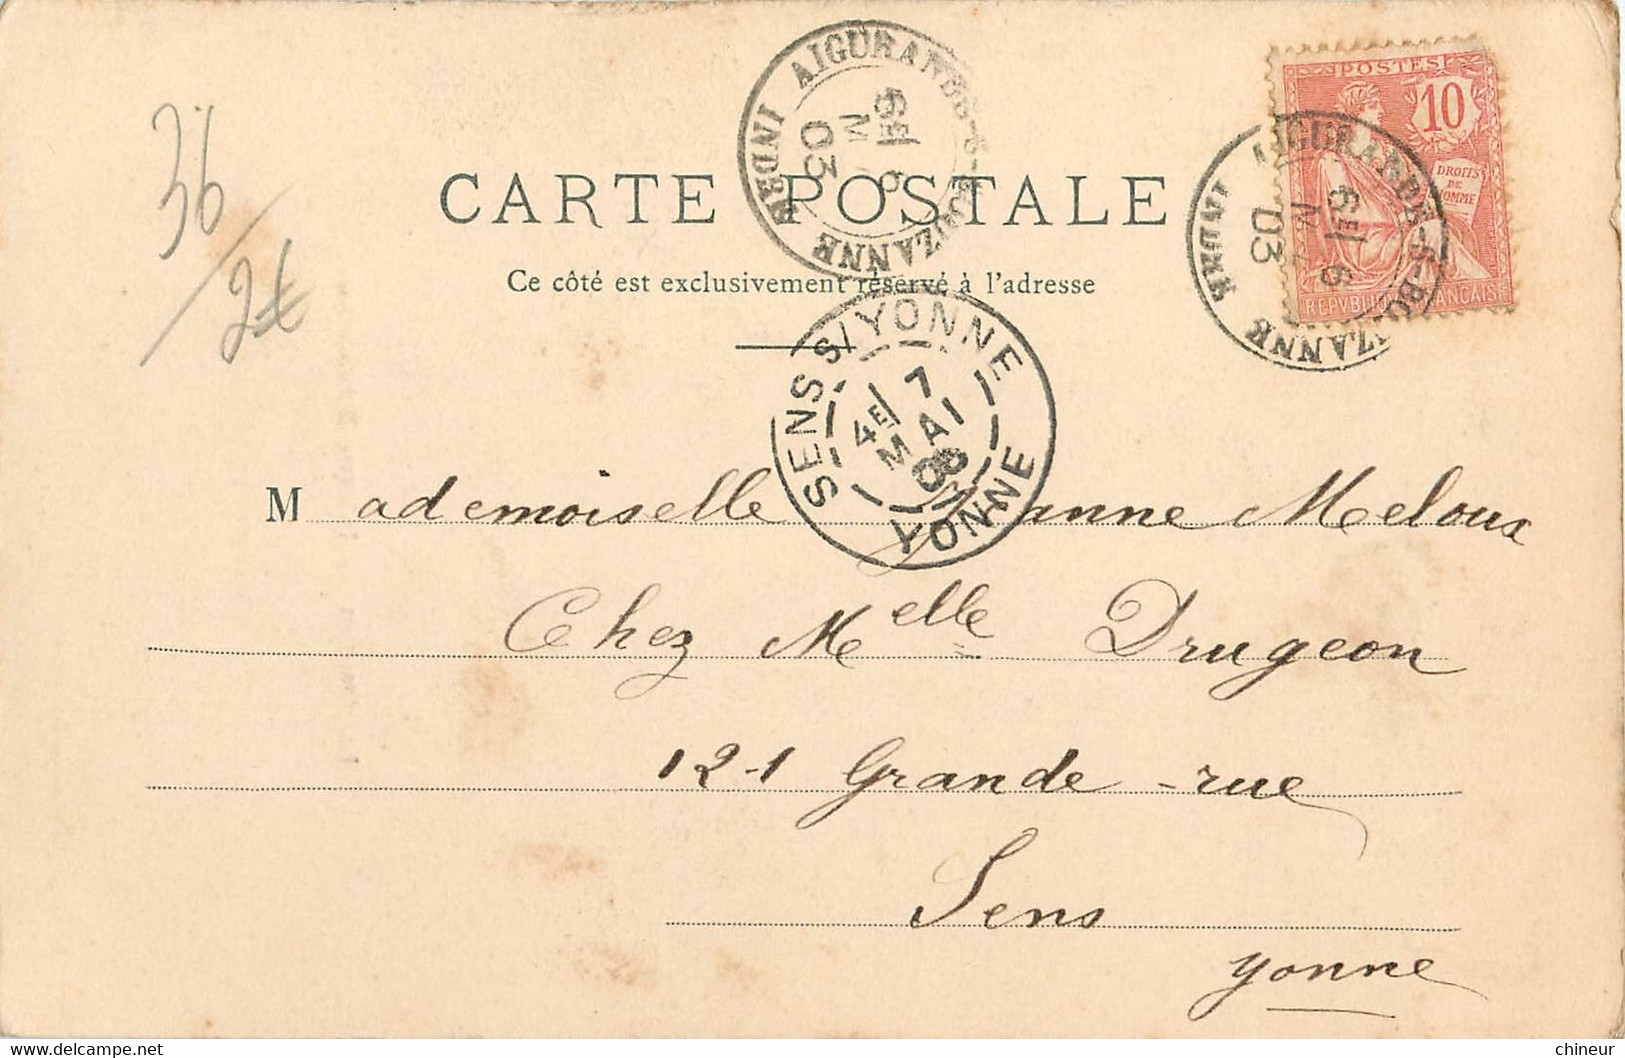 36
2€
AIGURANDE-S-BOUZANNE
6E 6
M
03
INDRE
POSTES
10
DROITS
DE
HOMME
REPVBLIQUE FRANCAISE
AIGURANDE-S-BOUZANNE
6E 6
M
03
INDRE
CARTE POSTALE
Ce côté est exclusivement réservé à l'adresse
SENS S/YONNE
4E 7
MAI
03
YONNE
Mademoiselle Jeanne Meloux
Chez Melle Drugeon
121 Grande-rue
Sens
Yonne
chineur